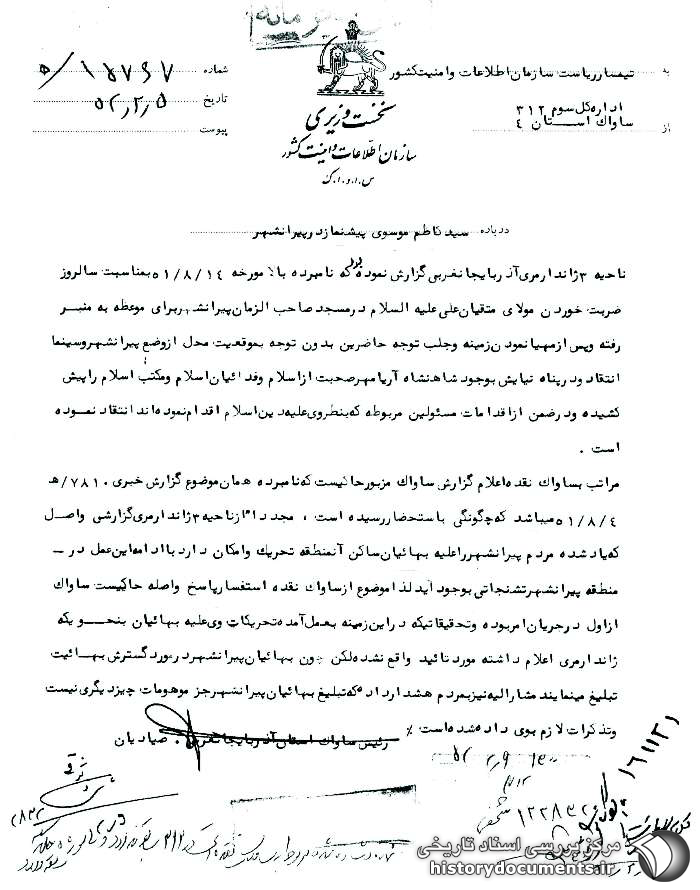 به تیمسار ریاست سازمان اطلاعات و امنیت کشور
اداره کل سوم ۳۱۲
از ساواک استان ۴
نخست وزیری
سازمان اطلاعات و امنیت کشور
س.ا.و.ا.ک
شماره ۱۵۷۶۷/ه
تاریخ ۵۲٫۲٫۵
پیوست
درباره سید کاظم موسوی پیشنماز در پیرانشهر
ناحیه ۳ ژاندارمری آذربایجانغربی گزارش نموده بود که نامبرده بالا مورخه ۵۱/۸/۱۴ بمناسبت سالروز
ضربت خوردن مولای متقیان علی علیه السلام در مسجد صاحب الزمان پیرانشهر برای موعظه به منبر
رفته و پس از مهیا نمودن زمینه و جلب توجه حاضرین بدون توجه بموقعیت محل از وضع پیرانشهر و سینما
انتقاد و در پناه نیایش بوجود شاهنشاه آریامهر صحبت از اسلام و فدائیان اسلام و مکتب اسلام را پیش
کشیده و در ضمن از اقدامات مسئولین مربوطه که بنظر وی علیه دین اسلام اقدام نموده اند انتقاد نموده
است .
مراتب بساواک نقده اعلام گزارش ساواک مزبور حاکیست که نامبرده همان موضوع گزارش خبری ۷۸۱۰/ه
۵۱/۸/۴ میباشد که چگونگی باستحضار رسیده است ، مجددا از ناحیه ۳ ژاندارمری گزارشی واصل
که یاد شده مردم پیرانشهر را علیه بهائیان ساکن آنمنطقه تحریک و امکان دارد با ادامه این عمل در ـ
منطقه پیرانشهر تشنجاتی بوجود آید لذا موضوع از ساواک نقده استفسار پاسخ واصله حاکیست ساواک
از اول در جریان امر بوده و تحقیقاتیکه در این زمینه بعمل آمده تحریکات وی علیه بهائیان بنحویکه
ژاندارمری اعلام داشته مورد تائید واقع نشده لکن چون بهائیان پیرانشهر در مورد گسترش بهائیت
تبلیغ مینمایند مشارالیه نیز بمردم هشدار داده که تبلیغ بهائیان پیرانشهر جز موهومات چیز دیگری نیست
و تذکرات لازم بوی داده شده است ٪
رئیس ساواک استان آذربایجانغربی . صیادیان
۱۶۱۱۳۱
۱۲۲۸۳۲
۲۸۳۲
مرکز بررسی اسناد تاریخی
historydocuments.ir